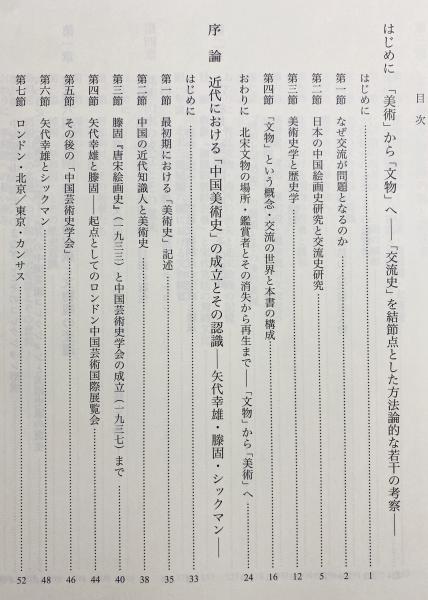 目　次
はじめに　「美術」から「文物」へ――「交流史」を結節点とした方法論的な若干の考察――
はじめに……1
第一節　なぜ交流が問題となるのか……2
第二節　日本の中国絵画史研究と交流史研究……5
第三節　美術史学と歴史学……12
第四節　「文物」という概念・交流の世界と本書の構成……16
おわりに　北宋文物の場所・鑑賞者とその消失から再生まで――「文物」から「美術」へ……24
序　論　近代における「中国美術史」の成立とその認識――矢代幸雄・滕固・シックマン――
はじめに……33
第一節　最初期における「美術史」記述……35
第二節　中国の近代知識人と美術史……38
第三節　滕固『唐宋絵画史』(一九三三)と中国芸術史学会の成立(一九三七)まで……40
第四節　矢代幸雄と滕固――起点としてのロンドン中国芸術国際展覧会……44
第五節　その後の「中国芸術史学会」……46
第六節　矢代幸雄とシックマン……48
第七節　ロンドン・北京／東京・カンサス……52